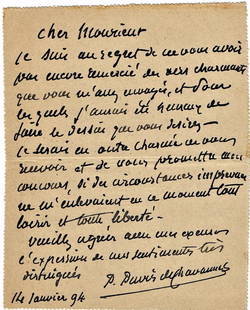 Cher Monsieur
Je suis au regret de ne vous avoir
pas encore remercié des vers charmants
que vous m'avez envoyés, et pour
lesquels j'aurais été heureux de
faire le dessin que vous désirez —
Je serais en outre charmé de vous
revoir et de vous promettre mon
concours, si des circonstances imprévues
ne m'enlevaient en ce moment tout
loisir et toute liberté —
Veuillez agréer avec mes excuses
l'expression de mes sentiments très
distingués
P. Puvis de Chavannes
14 Janvier 94